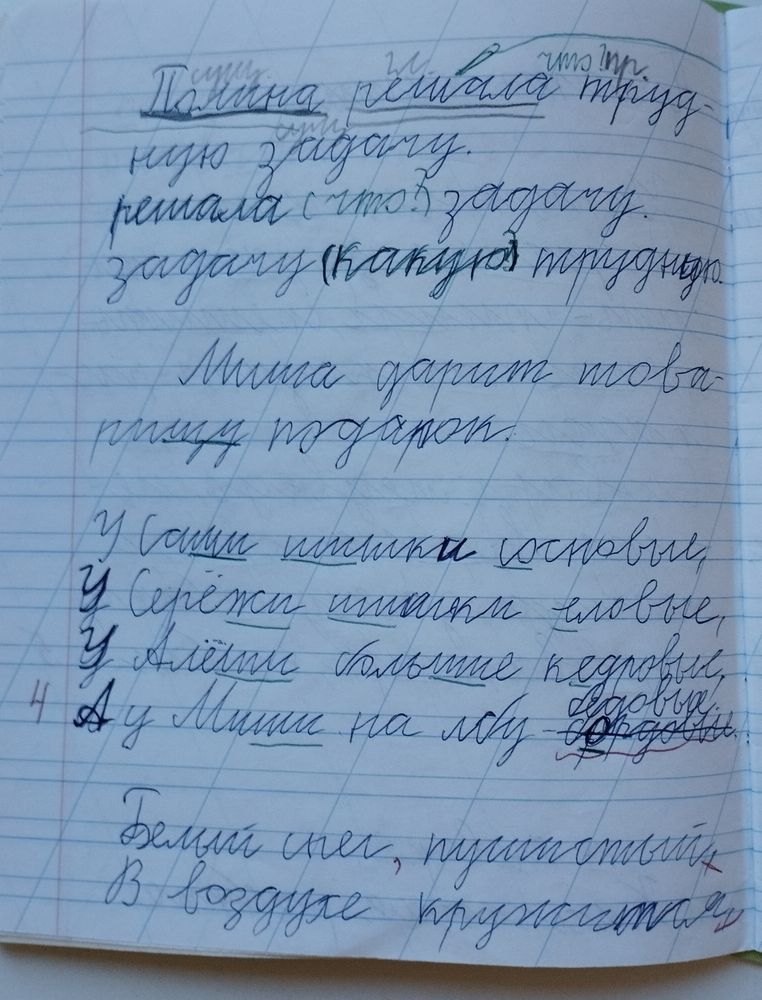 сущ. гл. что? пр.
Полина решала труд-
сущ.
ную задачу.
решала (что?) задачу.
задачу (какую?) трудную.
Миша дарит това-
рищу подарок.
У Саши шишки сосновые,
У Серёжи шишки еловые,
У Алёши большие кедровые,
бедовые.
4 А у Миши на лбу бордовы
Белый снег, пушистый
В воздухе кружится